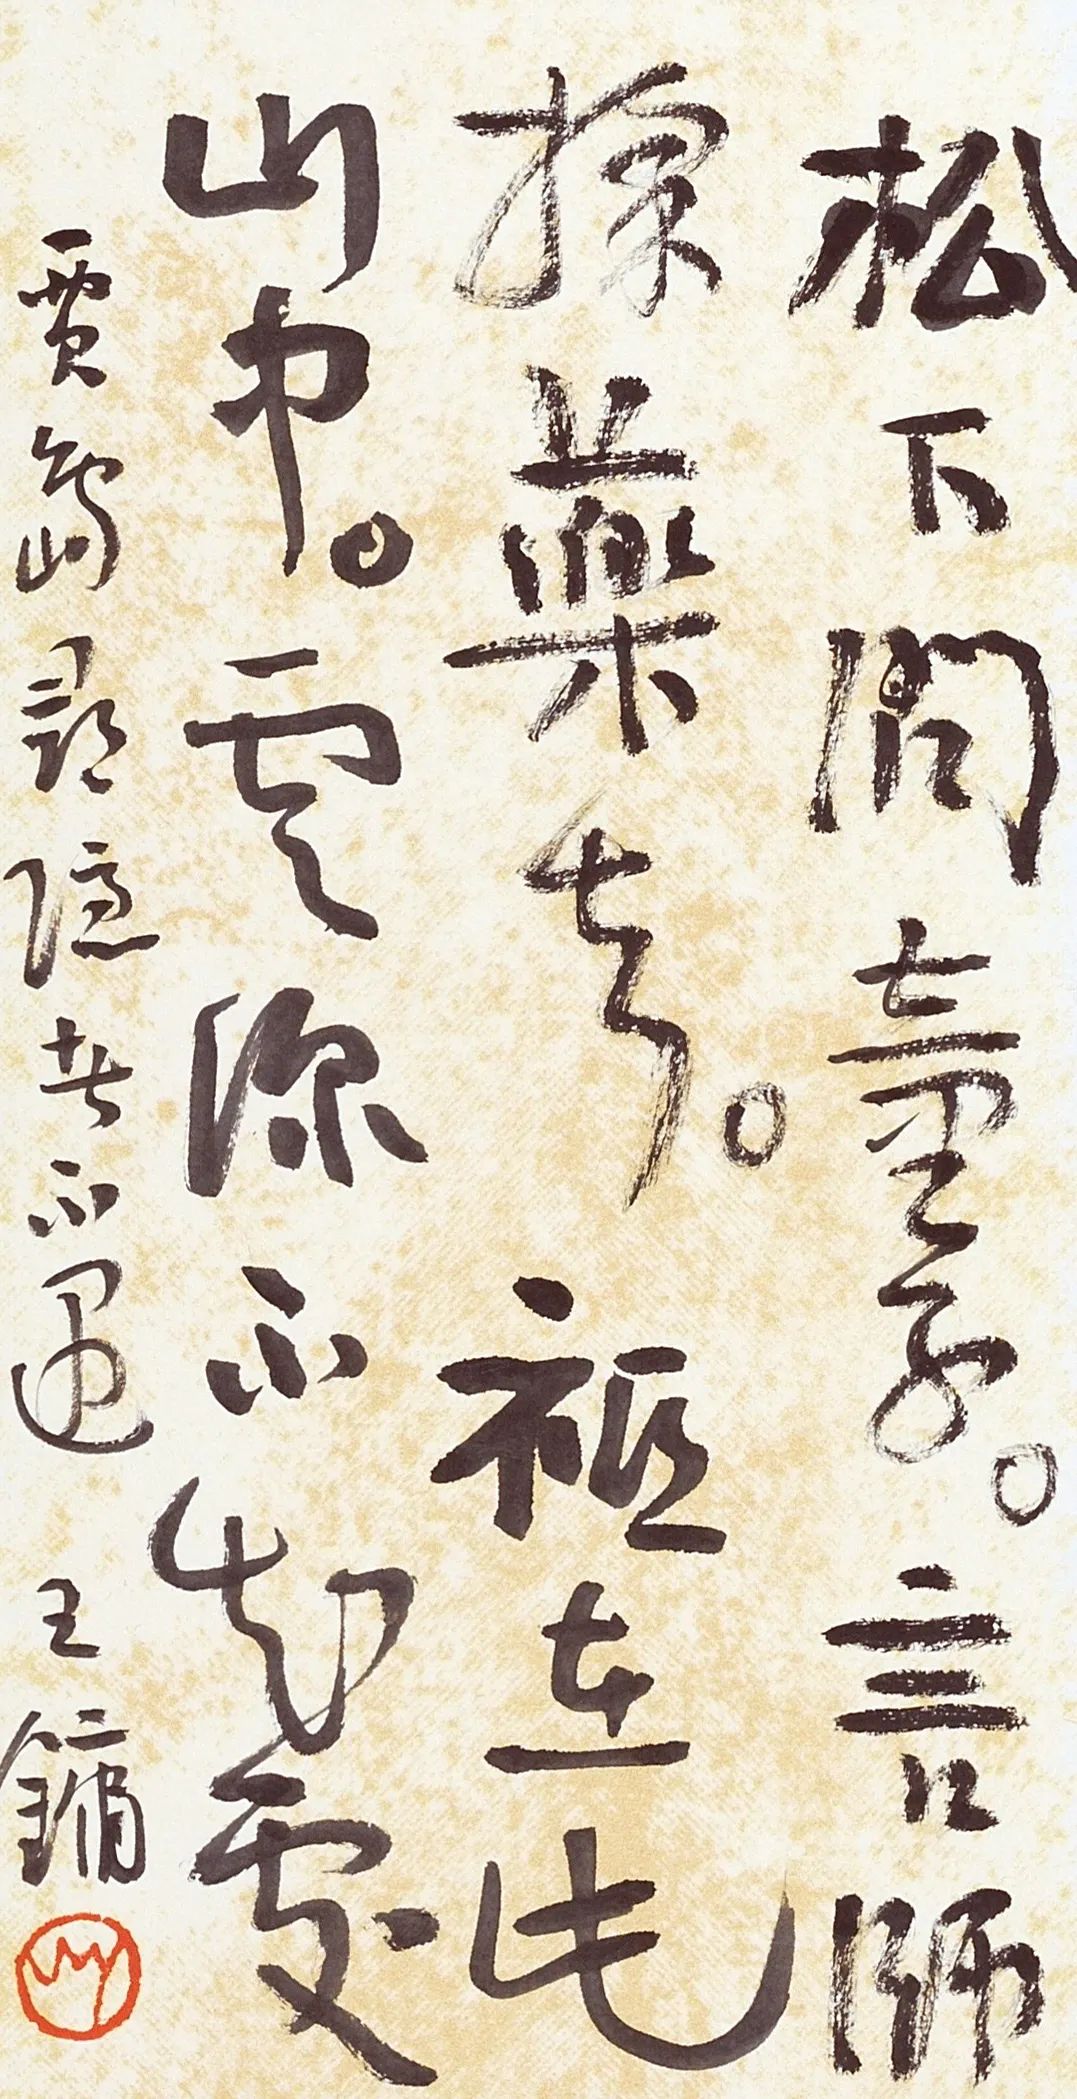 松下問童子。言師
採藥去。祗在此
山中。雲深不知處
賈島尋隱者不遇 王鏞